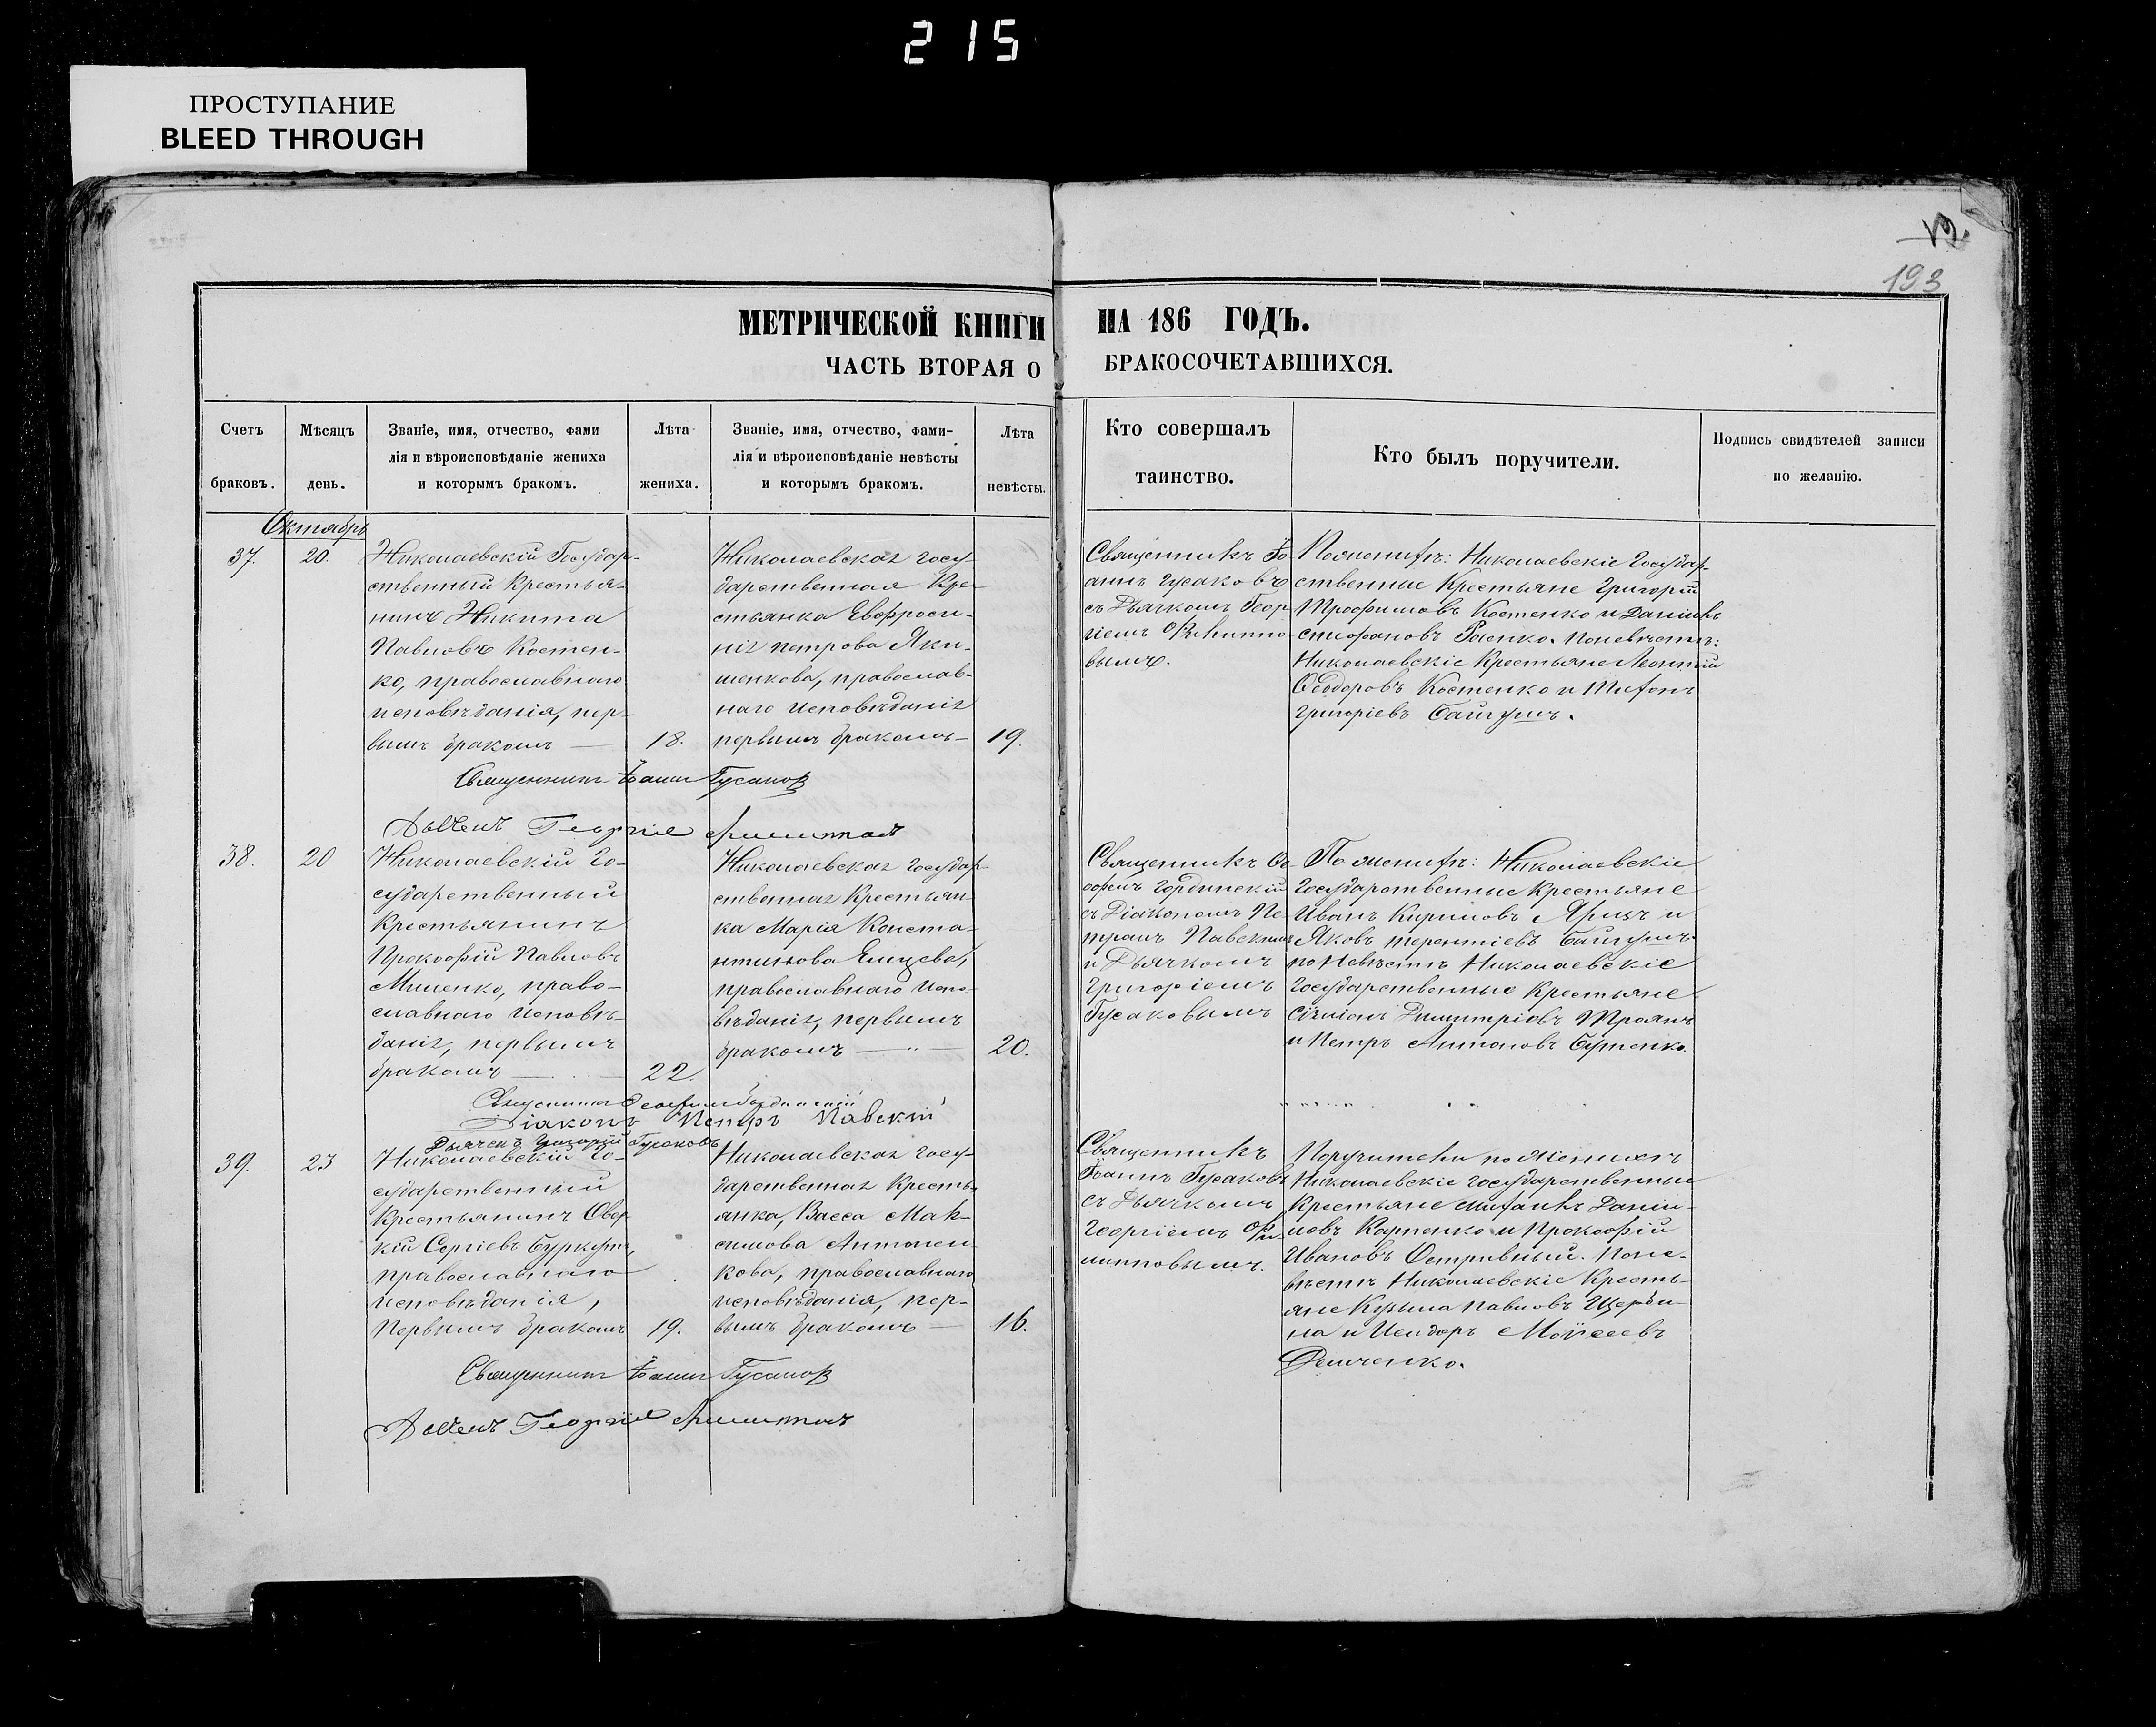 215
ПРОСТУПАНИЕ
BLEED THROUGH
193
МЕТРИЧЕСКОЙ КНИГИ НА 186 ГОДЪ.
ЧАСТЬ ВТОРАЯ О БРАКОСОЧЕТАВШИХСЯ.
Счетъ браковъ.
Мѣсяцъ день.
Званіе, имя, отчество, фами
лія и вѣроисповѣданіе жениха
и которымъ бракомъ.
Лѣта жениха.
Званіе, имя, отчество, фами-
лія и вѣроисповѣданіе невѣсты
и которымъ бракомъ.
Лѣта невѣсты.
Кто совершалъ
таинство.
Кто былъ поручители.
Подпись свидѣтелей записи
по желанію.
Октябрь
37.
20.
Николаевскій Государ-
ственный крестья-
нинъ Никита
Павловъ Костен-
ко, православнаго
исповѣданія, пер-
вымъ бракомъ
18.
Николаевская госу-
дарственная Кре-
стьянка Евфроси-
нія Петрова Яки-
менкова, православ-
наго исповѣданія
первымъ бракомъ
19.
Священникъ Іо
аннъ Гусаковъ
съ Дьячкомъ Геор
гіемъ Филиппо
вымъ.
По женихѣ: Николаевскіе Государ-
ственные Крестьяне Григорій
Трофимовъ Костенко и Даніилъ
Стефановъ Раенко. По невѣстѣ:
Николаевскіе Крестьяне Леонтій
Ѳеодоровъ Костенко и
Григоріевъ Байгушъ.
Священникъ Іоаннъ Гусаковъ
Дьячекъ Георгій Филипповъ
38.
20
Николаевскій Го-
сударственный
Крестьянинъ
Прокофій Павловъ
Миненко, право-
славнаго исповѣ-
данія, первымъ
бракомъ
22.
Николаевская государ-
ственная Крестьян-
ка Марія Конста-
нтинова
православнаго испо-
вѣданія, первымъ
бракомъ
20.
Священникъ Ѳе-
офилъ Гординскій
съ Діакономъ Пе-
тромъ Павскимъ
и Дьячкомъ
Григоріемъ
Гусаковымъ
По женихѣ: Николаевскіе
Государственные Крестьяне
Иванъ Кириловъ Ярицъ и
Яковъ Терентіевъ Байгушъ
по Невѣстѣ Николаевскіе
Государственные Крестьяне
Сѵмеонъ Димитріовъ Троянъ
и Петръ Антоновъ Бутенко.
Священникъ Ѳеофилъ Гординскій
Діаконъ Петръ Павскій
Дьячекъ Григорій Гусаковъ
39.
23
Николаевскій Го-
сударственный
Крестьянинъ Овер
кій Сергіевъ Буркутъ,
православнаго
исповѣданія,
Первымъ бракомъ
19.
Николаевская госу-
дарственная Кресть-
янка, Васса Мак-
симова Антонен-
кова, православнаго
исповѣданія, пер-
вымъ бракомъ
16.
Священникъ
Іоаннъ Гусаковъ
съ Дьячкомъ
Георгіемъ Фи-
липповымъ.
Поручители по женихѣ
Николаевскіе государственные
Крестьяне Митанъ Даніи-
ловъ Карпенко и Прокофій
Ивановъ Остривный. По не-
вѣстѣ Николаевскіе Кресть-
яне Кузьма Павловъ Щерби-
на и Исидоръ Моѵсеевъ
Демченко.
Священникъ Іоаннъ Гусаковъ
Дьячекъ Георгій Филипповъ